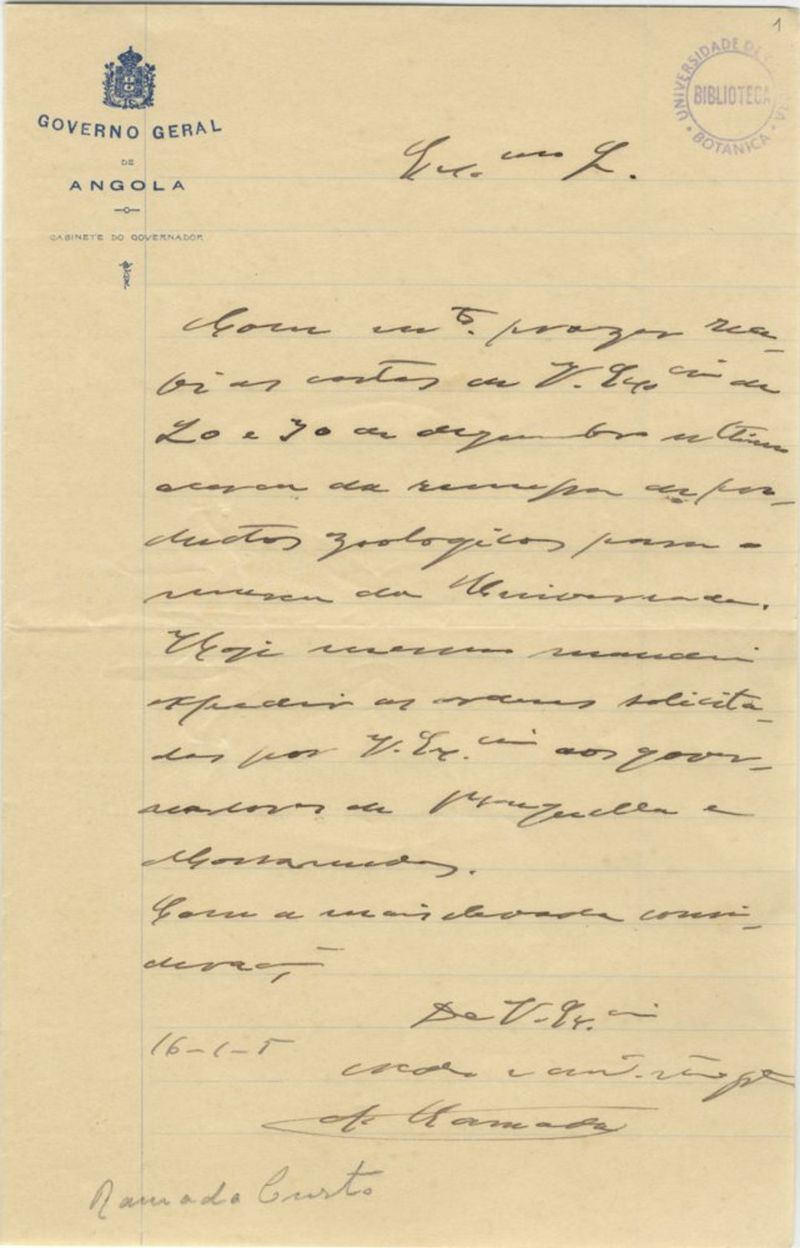 1
GOVERNO GERAL
DE
ANGOLA
GABINETE DO GOVERNADOR
UNIVERSIDADE DE COIMBRA
BIBLIOTECA
BOTANICA
Ex.mo S.
Com m.to prazer rece-
bi as cartas de V. Ex.cia de
20 e 30 de dezembro ultimo
acerca da remessa de pro-
ductos zoologicos para o
museu da Universidade.
Hoje mesmo mandei
expedir as ordens solicita-
das por V. Ex.cia aos gover-
nadores de Benguella e
Mossamedes.
Com a mais elevada consi-
deração
De V. Ex.cia
16-1-5
Ramada
Ramada Curto